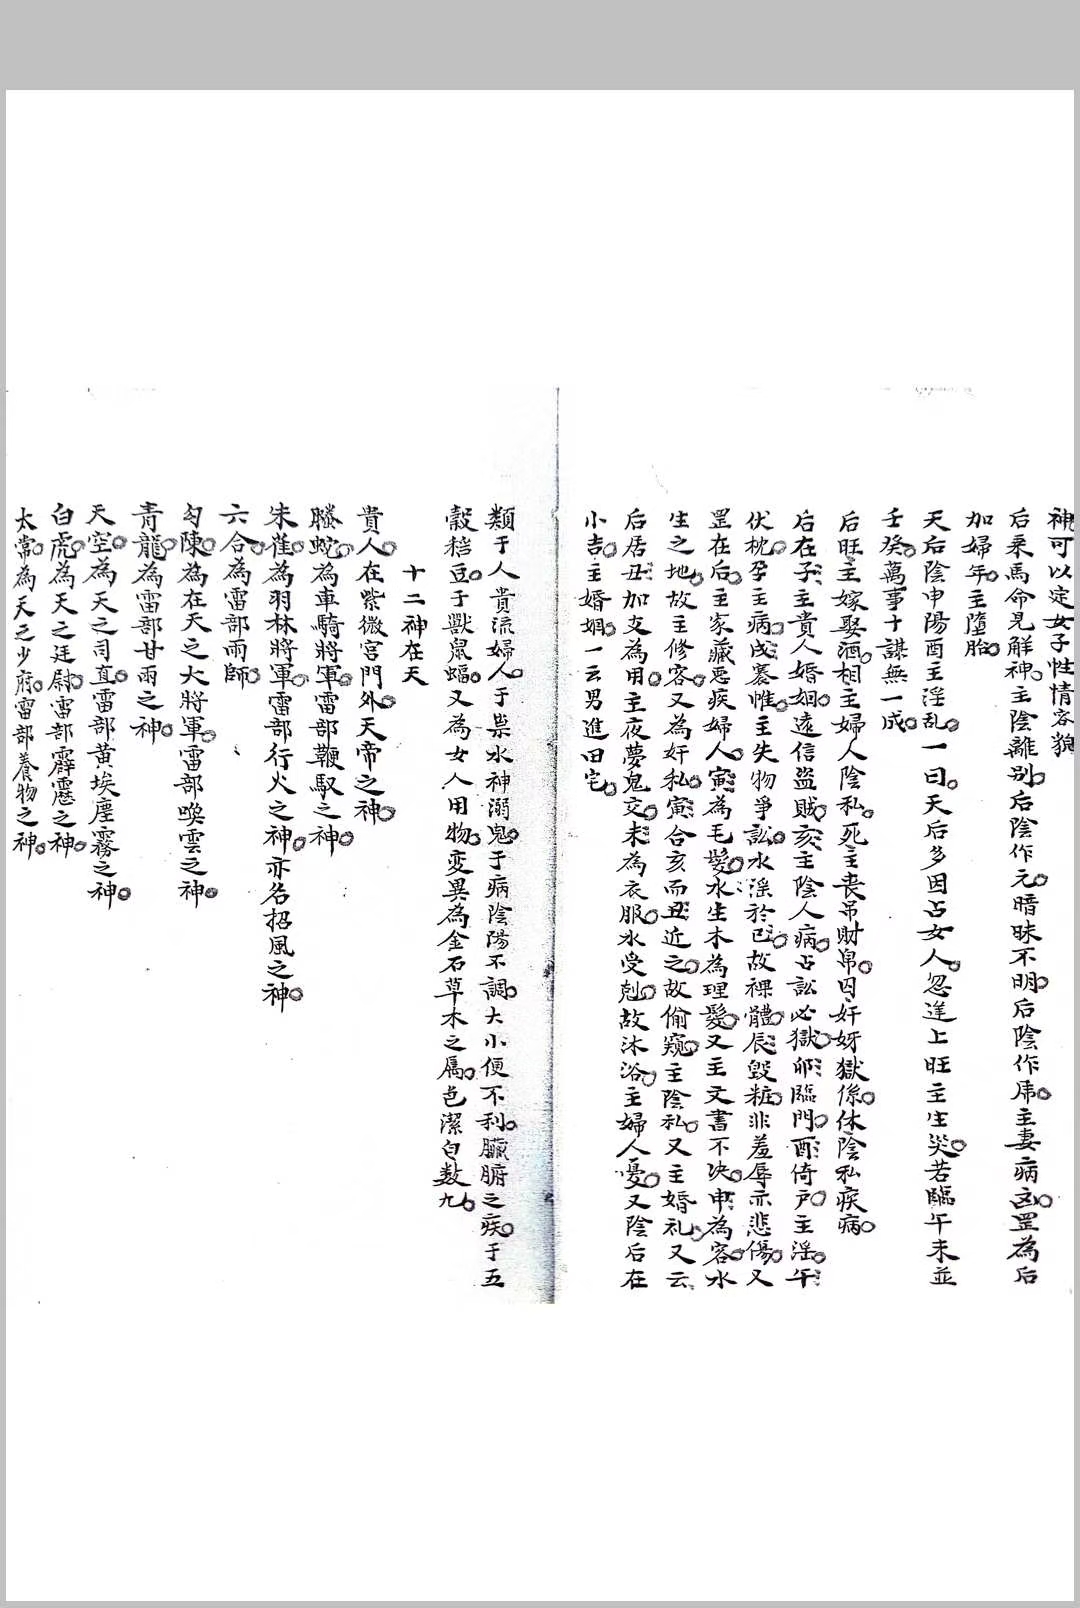 神可以定女子性情容貌
后乘馬命見解神主陰離别。后陰作元。暗昧不明。后陰作虎。主妻病凶。罡為后
加婦年。主墮胎。
天后陰申陽酉主淫乱。一曰。天后多因占女人。忽逢上旺主生災。若臨午未並
壬癸。萬事十謀無一成。
后旺主嫁娶酒。相主婦人陰私。死主喪吊財帛。囚奸妍獄係。休陰私疾病。
后在子。主貴人婚姻。遠信盜賊。亥主陰人病。占訟必獄。卯臨門。酉倚户。主淫。午
伏枕。孕主病。戌褰帷。主失物爭訟。水淫於巳。故裸體。辰毀粧。非羞辱亦悲傷。又
罡在后。主家藏惡疾婦人。寅為毛髮。水生木為理髮。又主文書不决。申為容。水
生之地。故主修容。又為奸私。寅合亥而丑近之。故偷窺。主陰私。又主婚礼。又云
后居丑。加支為用。主夜夢鬼交。未為衣服。水受剋。故沐浴。主婦人憂。又陰后在
小吉。主婚姻。一云男進田宅。
類于人貴流婦人。于祟水神溺鬼。于病陰陽不調。大小便不利。臟腑之疾。于五
穀稻豆。于獸鼠蝠。又為女人用物。变異為金石草木之属。色潔白数九。
十二神在天
貴人。在紫微宮門外。天帝之神。
螣蛇。為車騎將軍。雷部鞭馭之神。
朱雀。為羽林將軍。雷部行火之神。亦名招風之神。
六合。為雷部雨師。
勾陳。為在天之大將軍。雷部喚雲之神。
青龍。為雷部甘雨之神。
天空。為天之司直。雷部黄埃塵霧之神。
白虎。為天之廷尉。雷部霹靂之神。
太常。為天之少府。雷部養物之神。